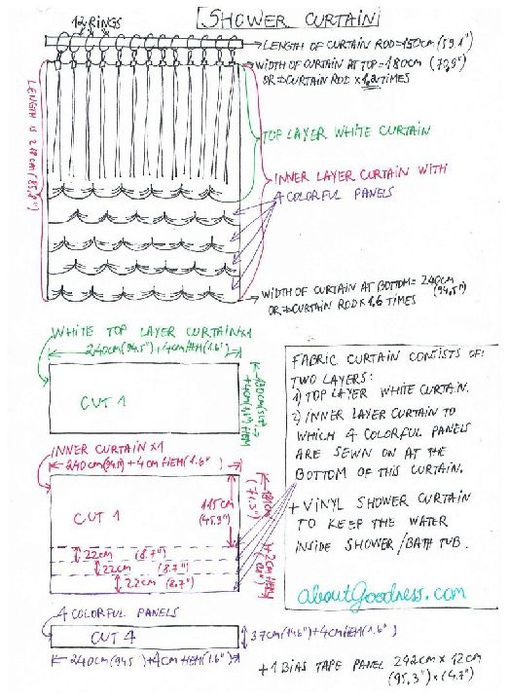 SHOWER CURTAIN
12 RINGS
LENGTH OF CURTAIN ROD = 150CM (59.1")
WIDTH OF CURTAIN AT TOP = 180CM (70,9")
OR ⇒ CURTAIN ROD × 1,2 TIMES
TOP LAYER WHITE CURTAIN
INNER LAYER CURTAIN WITH
4 COLORFUL PANELS
WIDTH OF CURTAIN AT BOTTOM = 240CM
(94,5")
OR ⇒ CURTAIN ROD × 1,6 TIMES
WHITE TOP LAYER CURTAIN × 1
240CM (94.5") + 4CM HEM (1.6")
CUT 1
INNER CURTAIN × 1
240CM (94.5) + 4CM HEM (1.6")
CUT 1
115CM
(45.3")
22CM (8.7")
22CM (8.7")
22CM (8.7")
181CM (71,3") + 2CM HEM
4 COLORFUL PANELS
CUT 4
37CM (14.6") + 4CM HEM (1.6")
240CM (94.5) + 4CM HEM (1.6")
+ 1 BIAS TAPE PANEL 242CM × 12CM
(95,3") × (4.7")
FABRIC CURTAIN CONSISTS OF:
TWO LAYERS:
1) TOP LAYER WHITE CURTAIN.
2) INNER LAYER CURTAIN TO
WHICH 4 COLORFUL PANELS
ARE SEWN ON AT THE
BOTTOM OF THIS CURTAIN.
+ VINYL SHOWER CURTAIN
TO KEEP THE WATER
INSIDE SHOWER/BATH TUB.
aboutGoodness.com